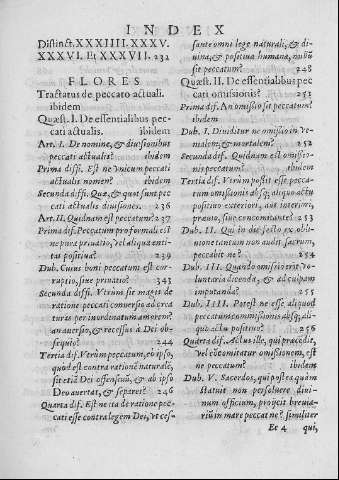 INDEX
Distinct. XXXIIII. XXXV.
XXXVI. Et XXXVII. 232
FLORES
Tractatus de peccato actuali.
ibidem
Quæst. I. De essentialibus pec-
cati actualis. ibidem
Art. I. De nomine, & diuisionibus
peccati actualis? ibidem
Prima diffi. Est ne vnicum peccati
actualis nomen? ibidem
Secunda diffi. Quæ, & quot sunt pec
cati actualis diuisiones. 236
Art. II. Quidnam est peccatum? 237
Prima diff. Peccatum pro formali est
ne pura priuatio, vel aliqua enti-
tas positiua? 239
Dub. Cuius boni peccatum est cor-
ruptio, siue priuatio? 343
Secunda diffi. Vtrùm sit magis de
ratione peccati conuersio ad crea
turis per inordinatum amorem?
an auersio, & recessus à Dei ob-
sequio? 244
Tertia diffi. Vtrùm peccatum, eo ipso,
quod est contra rationẽ naturale,
sit etiã Dei offensiuũ, & ab ipso
Deo auertat, & separet? 246
Quarta diff. Est ne ita de ratione pec
cati esse contra legem Dei, vt ces-
sante omni lege naturali, & di-
uina, & positiua humana, nullũ
sit peccatum? 248
Quæst. II. De essentialibus pec
cati omissionis? 251
Prima dif. An omissio sit peccatum?
ibidem
Dub. I. Diuiditur ne omissio in ve-
nialem; & mortalem? 252
Secunda diff. Quidnam est omissio-
nis peccatum? ibidem
Tertia diff. Vtrùm possit esse pecca-
tum omissionis absq; aliquo actu
positiuo exteriori, aut interiori,
præuio, siue concomitante? 253
Dub. II. Qui in die festo ex obliui-
one tantum non audit sacrum,
peccabit ne? 254
Dub. III. Quando omissio erit vo-
luntaria dicenda, & ad culpam
imputanda? 255
Dub. IIII. Potest ne esse aliquod
peccatum commissionis absq; ali-
quo actu positiuo? 256
Quarta diff. Actus ille, qui præcedit,
vel comitatur omissionem, est
ne peccatum? ibidem
Dub. V. Sacerdos, qui postea quàm
statuit non persoluere diui-
num officium, proijcit breuia-
riũ in mare peccat ne? similiter
Ee 4 qui,